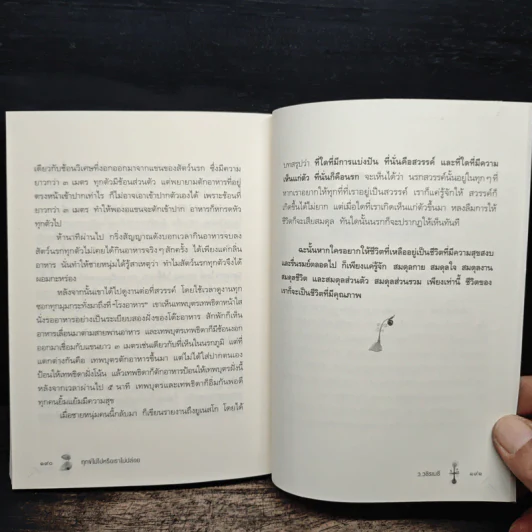 เดียวกับช้อนวิเศษที่งอกออกมาจากแขนของสัตว์นรก ซึ่งมีความ
ยาวกว่า ๓ เมตร ทุกตัวมีช้อนส่วนตัว แต่พยายามตักอาหารที่อยู่
ตรงหน้าเข้าปากเท่าไร ก็ไม่อาจเอาเข้าปากตัวเองได้ เพราะช้อนที่
ยาวกว่า ๓ เมตร ทำให้พอง้อแขนจะตักเข้าปาก อาหารก็หกรดหัว
ทุกตัวไป
ห้านาทีผ่านไป กริ่งสัญญาณดังบอกเวลากินอาหารจบลง
สัตว์นรกทุกตัวไม่เคยได้กินอาหารจริงๆ สักครั้ง ได้เพียงแค่กลิ่น
อาหาร นั่นทำให้ชายหนุ่มได้รู้สาเหตุว่า ทำไมสัตว์นรกทุกตัวจึงได้
ผอมกะหร่อง
หลังจากนั้นเขาได้ไปดูงานต่อที่สวรรค์ โดยใช้เวลาดูงานทุก
ซอกทุกมุมกระทั่งมาถึงที่ "โรงอาหาร" เขาเห็นเทพบุตรเทพธิดาหน้าใส
นั่งรออาหารอย่างเป็นระเบียบสองฝั่งของโต๊ะอาหาร สักพักก็เห็น
อาหารเลื่อนมาตามสายพานอาหาร และเทพบุตรเทพธิดาก็มีช้อนงอก
ออกมาเชื่อมกับแขนยาว ๓ เมตรเช่นเดียวกับที่เห็นในนรกภูมิ แต่ที่
แตกต่างกันคือ เทพบุตรตักอาหารขึ้นมา แต่ไม่ได้ใส่ปากตนเอง
ป้อนให้เทพธิดาฝั่งโน้น แล้วเทพธิดาก็ตักอาหารป้อนให้เทพบุตรฝั่งนี้
หลังจากเวลาผ่านไป ๕ นาที เทพบุตรและเทพธิดาก็อิ่มกันพอดี
ทุกคนยิ้มแย้มมีความสุข
เมื่อชายหนุ่มคนนี้กลับมา ก็เขียนรายงานถึงยูเนสโก โดยได้
ทุกข์ไม่ไปหรือเราไม่ปล่อย
บทสรุปว่า ที่ใดที่มีการแบ่งปัน ที่นั่นคือสวรรค์ และที่ใดที่มีความ
เห็นแก่ตัว ที่นั่นก็คือนรก จะเห็นได้ว่า นรกสวรรค์นั้นอยู่ในทุกๆ ที่
หากเราอยากให้ทุกที่ที่เราอยู่เป็นสวรรค์ เราก็แค่รู้จักให้ สวรรค์ก็
เกิดขึ้นได้ไม่ยาก แต่เมื่อใดที่เราเกิดเห็นแก่ตัวขึ้นมา หลงลืมการให้
ชีวิตก็จะเสียสมดุล ทันใดนั้นนรกก็จะปรากฏให้เห็นทันที
ฉะนั้นหากใครอยากให้ชีวิตที่เหลืออยู่เป็นชีวิตที่มีความสุขสงบ
และรื่นรมย์ตลอดไป ก็เพียงแค่รู้จัก สมดุลกาย สมดุลใจ สมดุลงาน
สมดุลชีวิต และสมดุลส่วนตัว สมดุลส่วนรวม เพียงเท่านี้ ชีวิตของ
เราก็จะเป็นชีวิตที่มีคุณภาพ
ว.วชิรเมธี